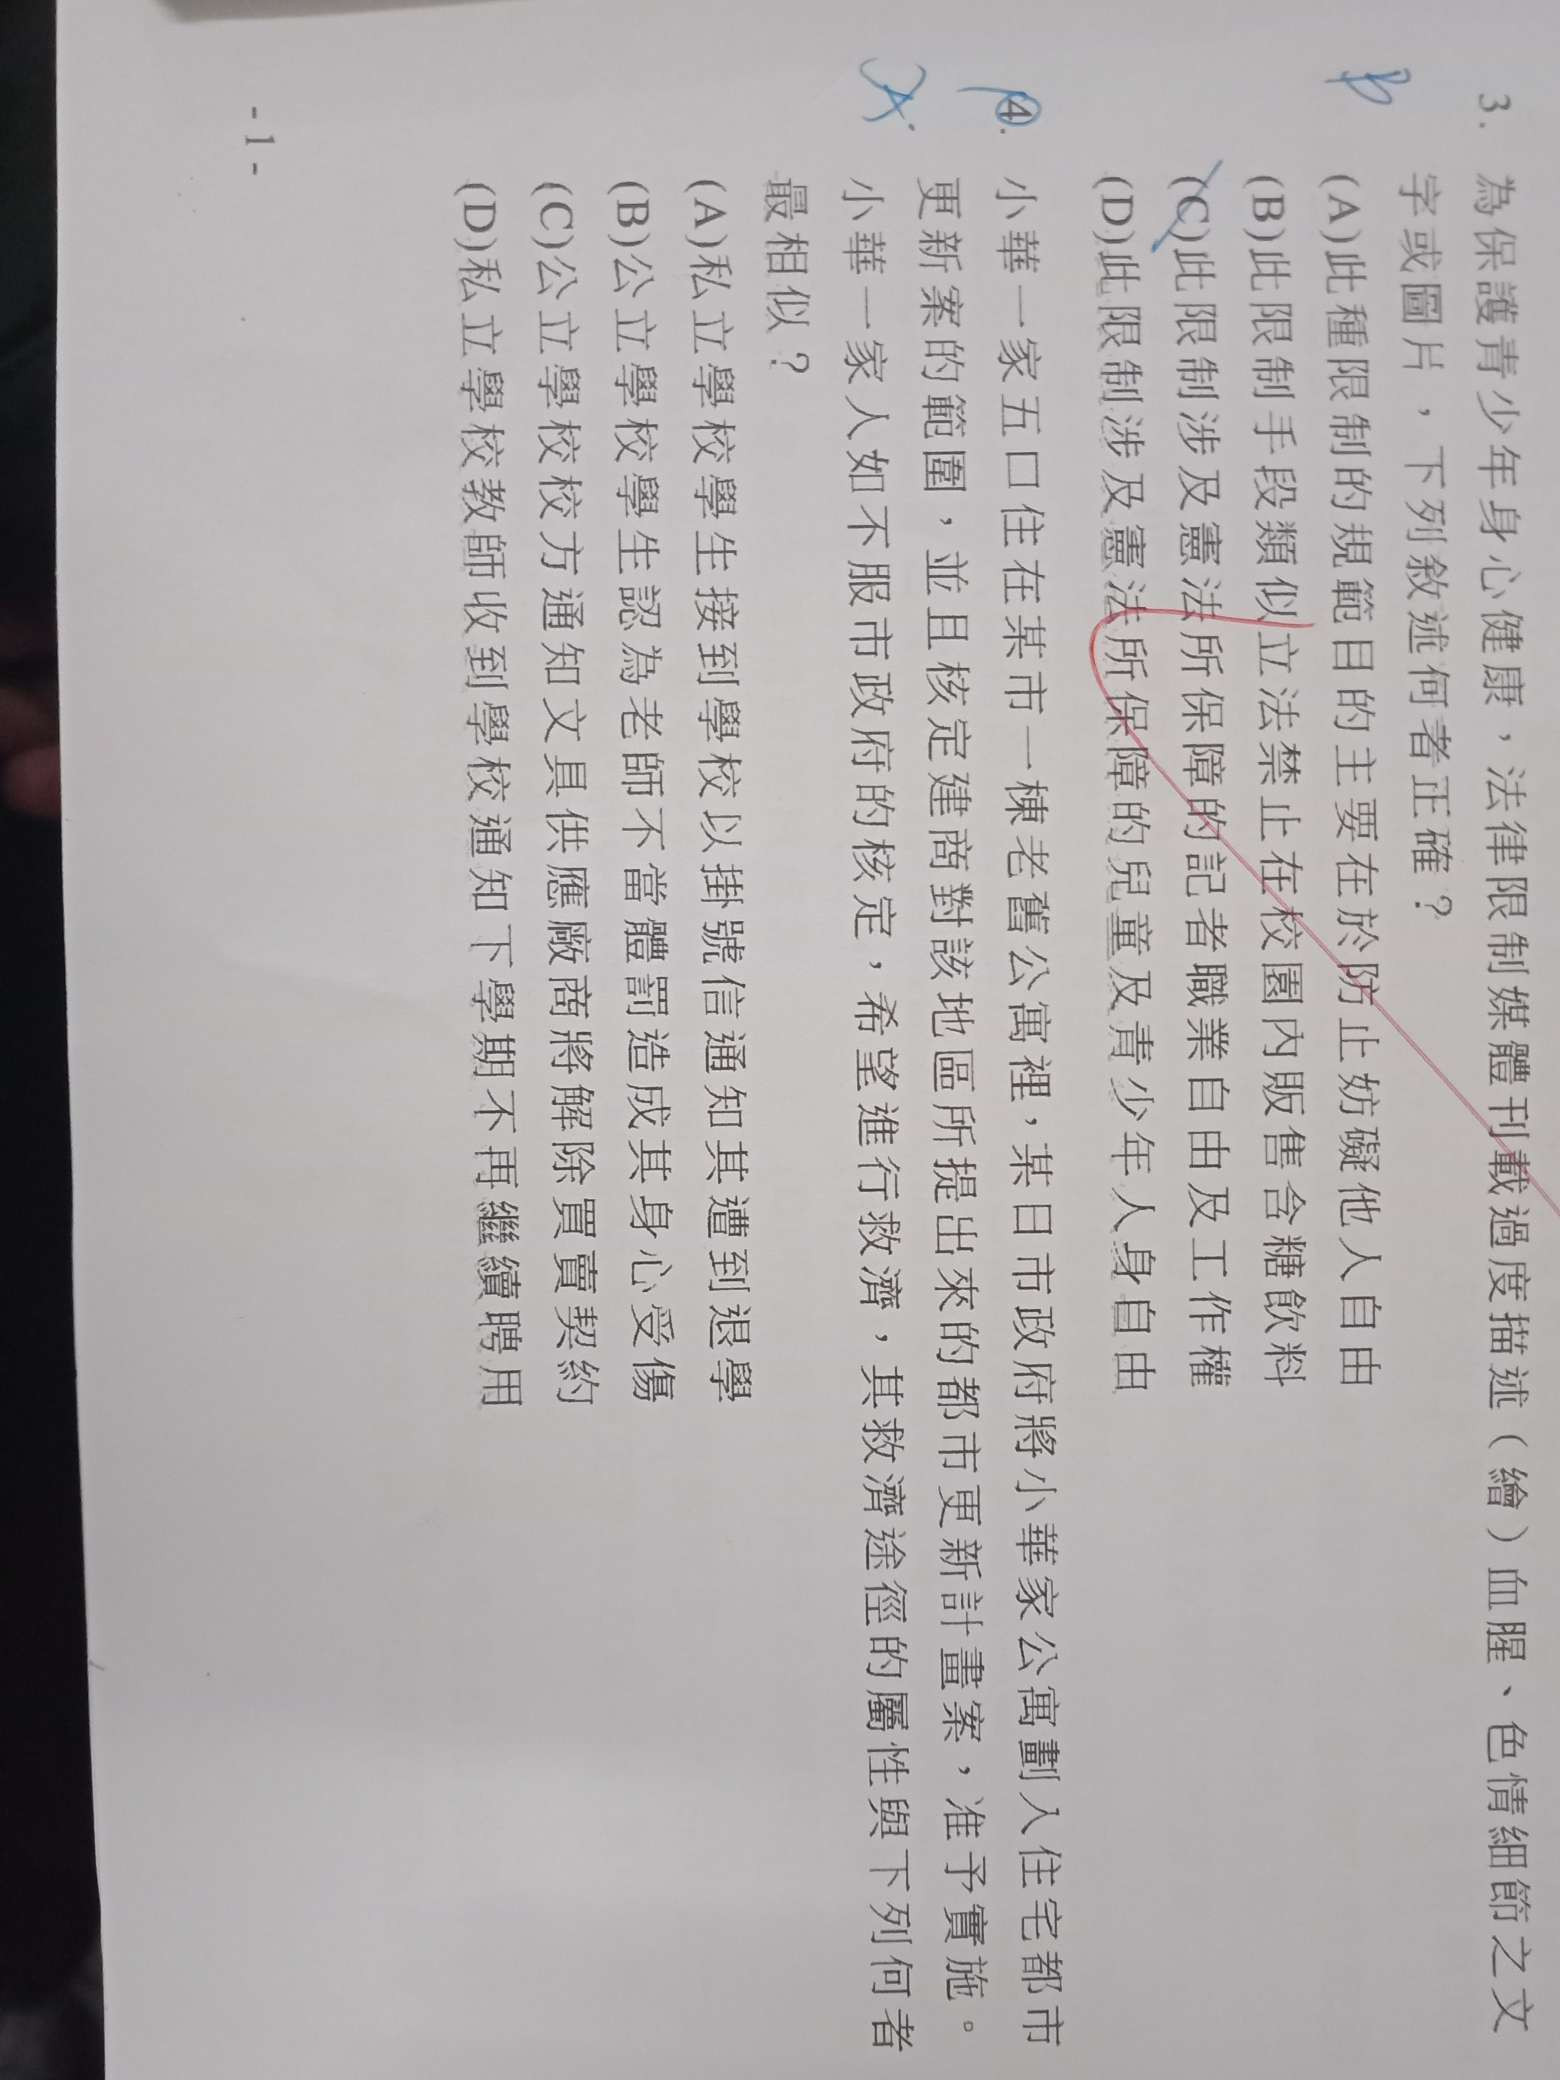 3. 為保護青少年身心健康，法律限制媒體刊載過度描述（繪）血腥、色情細節之文
字或圖片，下列敘述何者正確？
B
(A)此種限制的規範目的主要在於防止妨礙他人自由
(B)此限制手段類似立法禁止在校園內販售含糖飲料
(C)此限制涉及憲法所保障的記者職業自由及工作權
(D)此限制涉及憲法所保障的兒童及青少年人身自由
4. 小華一家五口住在某市一棟老舊公寓裡，某日市政府將小華家公寓劃入住宅都市
更新案的範圍，並且核定建商對該地區所提出來的都市更新計畫案，准予實施。
小華一家人如不服市政府的核定，希望進行救濟，其救濟途徑的屬性與下列何者
最相似？
(A)私立學校學生接到學校以掛號信通知其遭到退學
(B)公立學校學生認為老師不當體罰造成其身心受傷
(C)公立學校校方通知文具供應廠商將解除買賣契約
(D)私立學校教師收到學校通知下學期不再繼續聘用
- 1 -